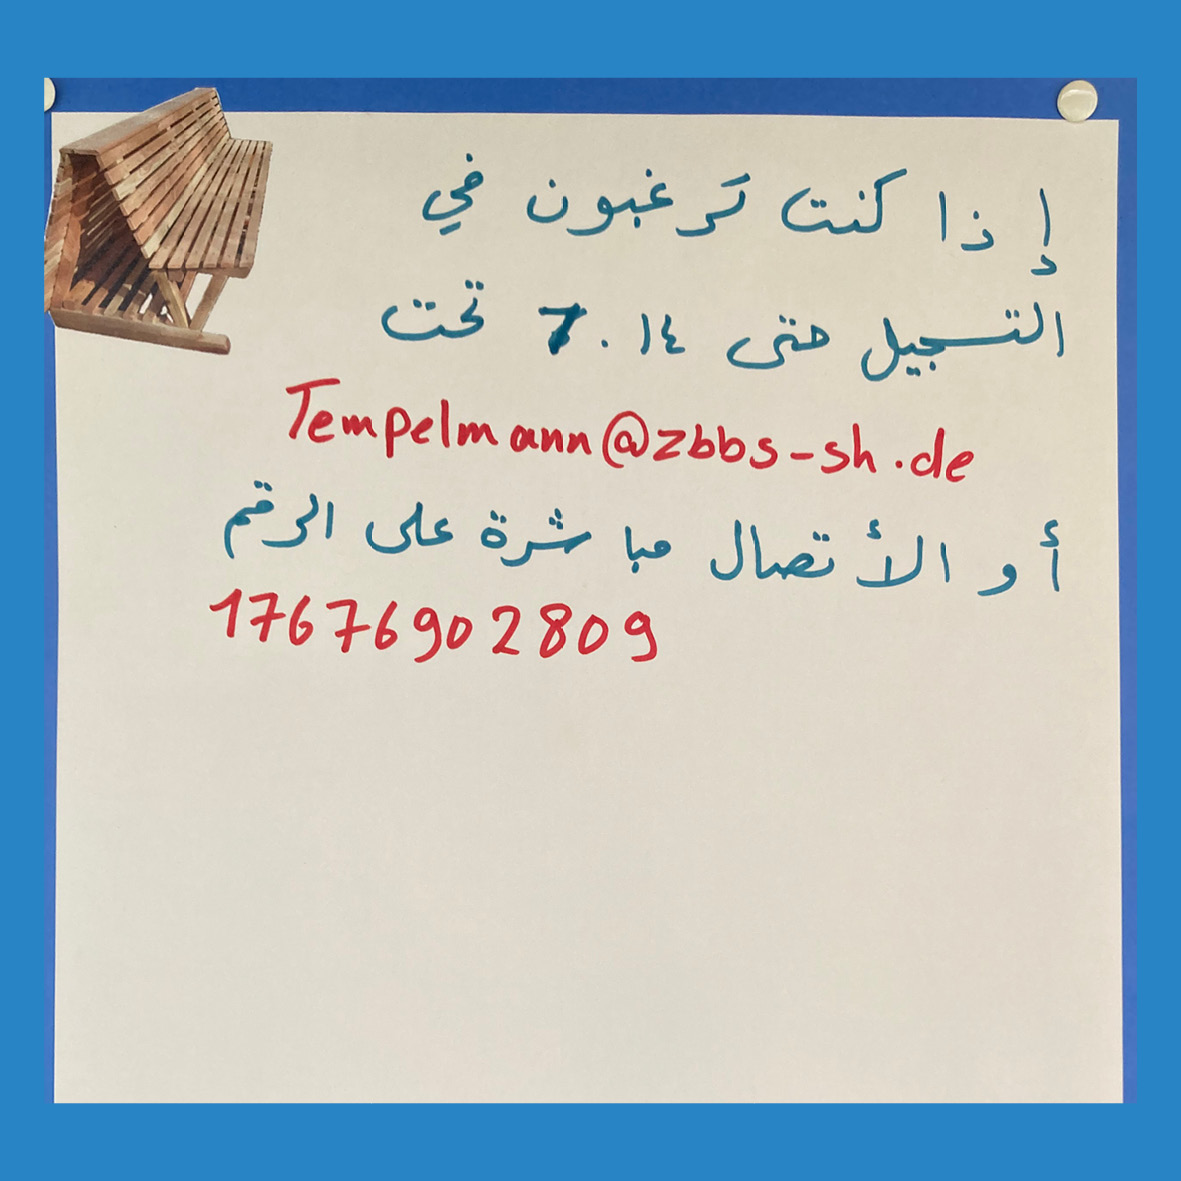 إذا كنت ترغبون في
التسجيل حتى ١٤. 7 تحت
Tempelmann@zbbs-sh.de
أو الأتصال مباشرة على الرقم
17676902809